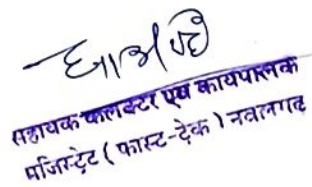 सहायक कलक्टर एवं कार्यपालक
मजिस्ट्रेट (फास्ट-ट्रेक) नवलगढ